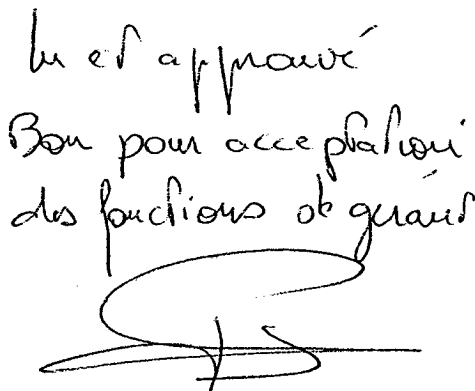 lu et approuvé
Bon pour acceptation
des fonctions de gérant